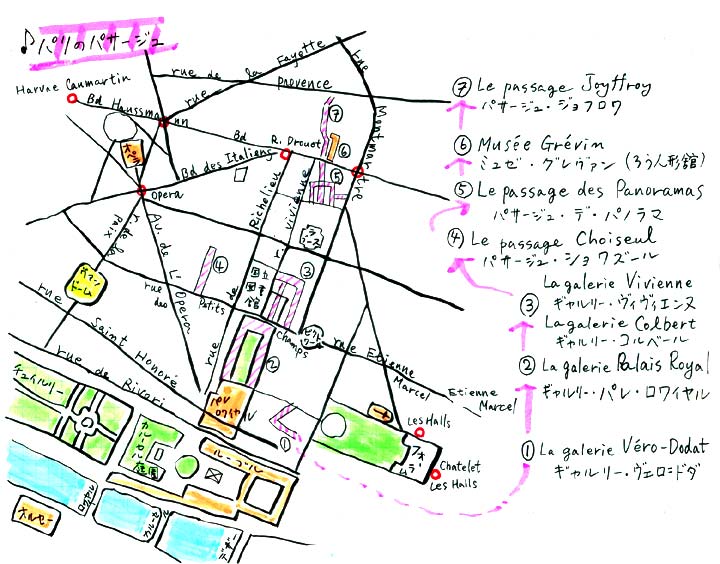 ♪パリのパサージュ
Harvre Caumartin
Bd Haussmann
rue de la Fayette
rue de provence
rue Montmartre
オペラ
Bd des Italiens
Bd
R. Drouot
⑦
⑥
⑤
Opera
r. de la Paix
Av. de L'Opera
Richelieu
vivienne
④
国立図書館
③
ヴァンドーム
rue des Petits Champs
rue
②
rue Saint Honoré
rue de Rivori
rue Etienne Marcel
Etienne Marcel
パレロワイヤル
①
チュイルリー
カルーゼル庭園
ルーブル
オルセー
Les Halls
フォーラム
Chatelet
Les Halls
⑦ Le passage Joyffroy
パサージュ・ジョフロワ
⑥ Musée Grévin
ミュゼ・グレヴァン (ろう人形館)
⑤ Le passage des Panoramas
パサージュ・デ・パノラマ
④ Le passage Choiseul
パサージュ・ショワズール
③ La galerie Vivienne
ギャルリー・ヴィヴィエンヌ
La galerie Colbert
ギャルリー・コルベール
② La galerie Palais Royal
ギャルリー・パレ・ロワイヤル
① La galerie Véro-Dodat
ギャルリー・ヴェロ=ドダ